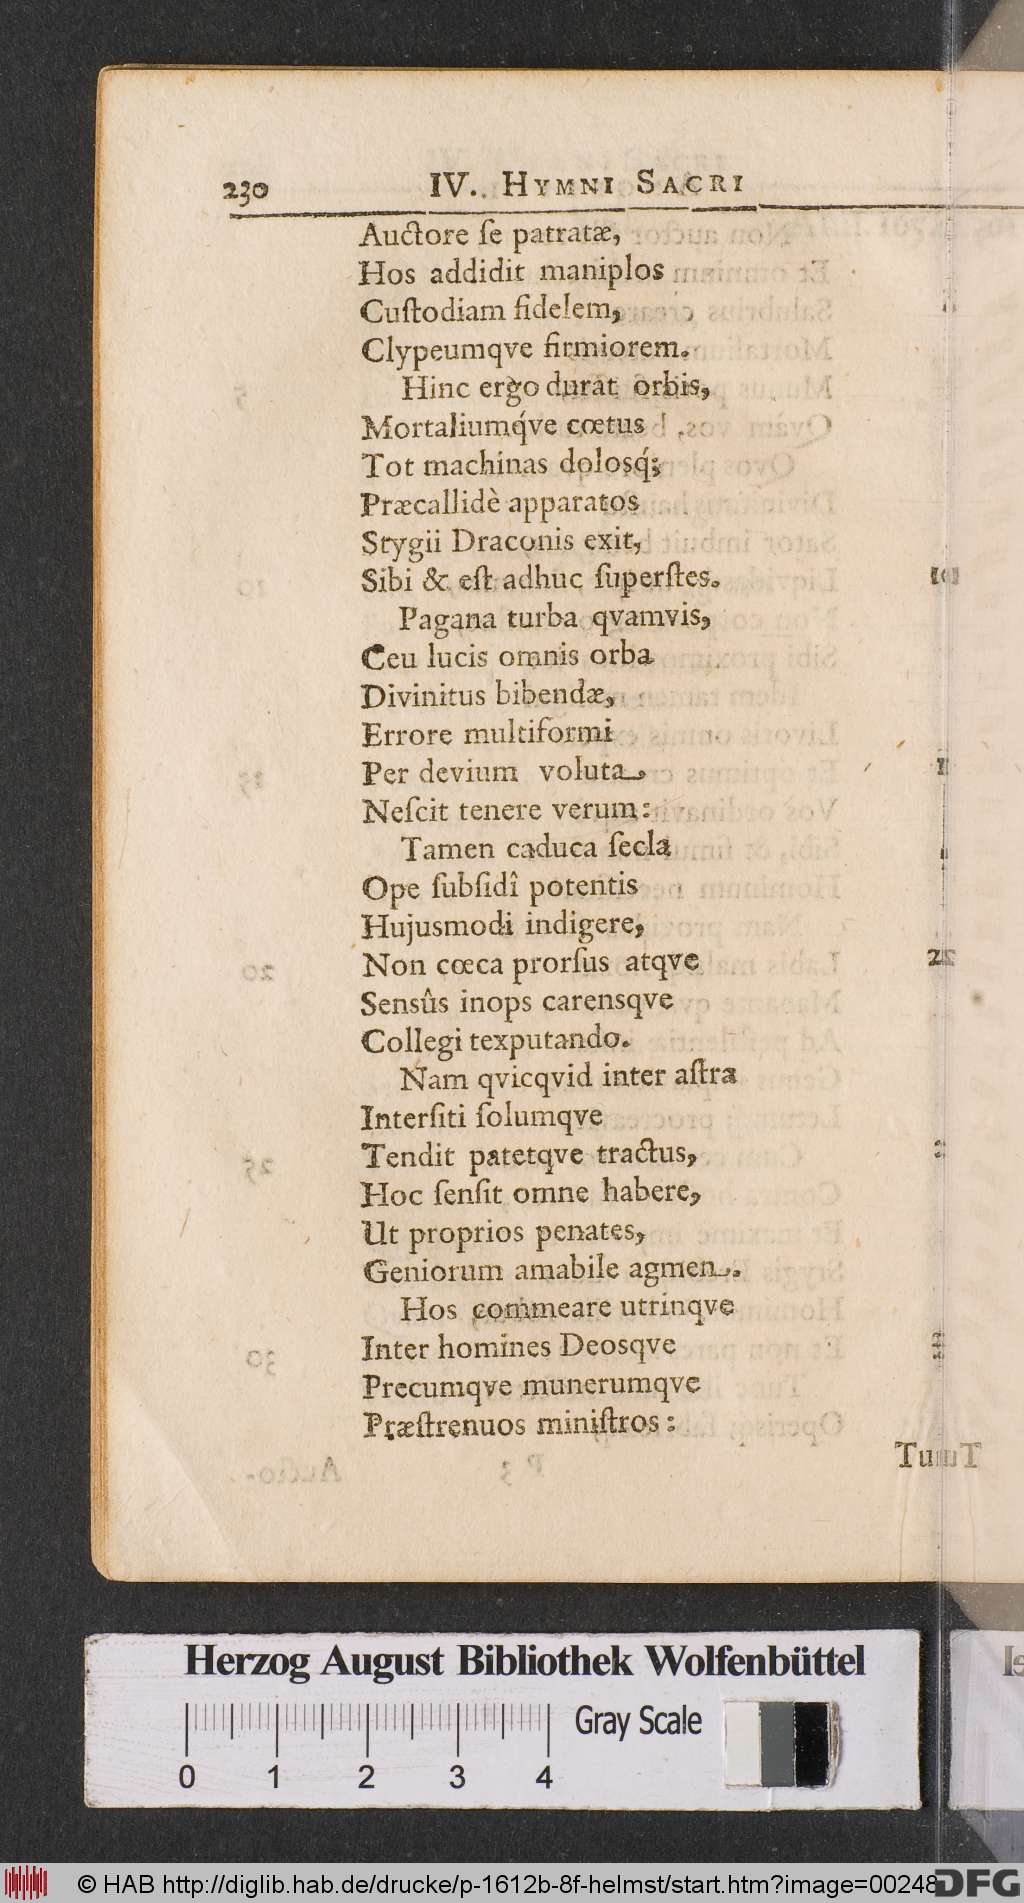 230 IV. HYMNI SACRI
Auctore ſe patratæ,
Hos addidit maniplos
Cuſtodiam fidelem,
Clypeumqve firmiorem.
Hinc ergò durat orbis,
Mortaliumq́ve cœtus
Tot machinas dolosq́;
Præcallidè apparatos
Stygii Draconis exit,
Sibi & eſt adhuc ſuperſtes.
Pagana turba qvamvis,
Ceu lucis omnis orba
Divinitus bibendæ,
Errore multiformi
Per devium voluta,
Neſcit tenere verum:
Tamen caduca ſecla
Ope ſubſidî potentis
Hujusmodi indigere,
Non cœca prorſus atqve
Sensûs inops carensqve
Collegi texputando.
Nam qvicqvid inter aſtra
Interſiti ſolumqve
Tendit patetqve tractus,
Hoc ſenſit omne habere,
Ut proprios penates,
Geniorum amabile agmen.
Hos commeare utrinqve
Inter homines Deosqve
Precumqve munerumqve
Præſtrenuos miniſtros:
Tum
Herzog August Bibliothek Wolfenbüttel
Gray Scale
0 1 2 3 4
© HAB http://diglib.hab.de/drucke/p-1612b-8f-helmst/start.htm?image=00248
DFG